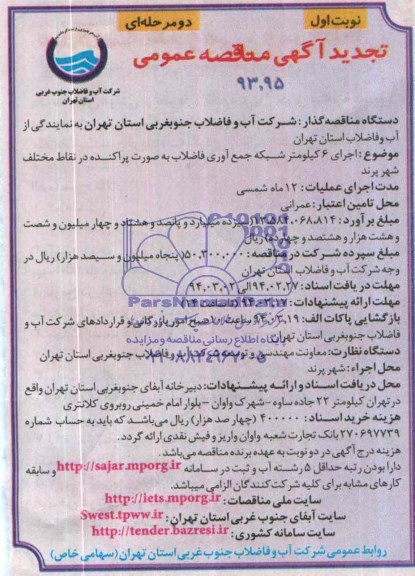 نوبت اول
دو مرحله‌ای
تجدید آگهی مناقصه عمومی
۹۳،۹۵
شرکت آب و فاضلاب جنوب غربی
استان تهران
دستگاه مناقصه‌گذار: شرکت آب و فاضلاب جنوبغربی استان تهران به نمایندگی از
آب وفاضلاب استان تهران
موضوع: اجرای ۶ کیلومتر شبکه جمع آوری فاضلاب به صورت پراکنده در نقاط مختلف
شهر پرند
مدت اجرای عملیات: ۱۲ ماه شمسی
محل تامین اعتبار: عمرانی
مبلغ برآورد: ۱۳،۵۸۴،۰۶۸،۸۱۴ (سیزده میلیارد و پانصد و هشتاد و چهار میلیون و شصت
و هشت هزار و هشتصد و چهارده) ریال
مبلغ سپرده شرکت در مناقصه: ۵۰،۳۰۰،۰۰۰ (پنجاه میلیون و سیصد هزار) ریال در
وجه شرکت آب و فاضلاب استان تهران
مهلت دریافت اسناد:
مهلت ارائه پیشنهادات:
بازگشایی پاکات الف: ۹۴،۰۳،۱۹ ساعت صبح امور بازرگانی و قراردادهای شرکت آب و
فاضلاب جنوبغربی استان تهران
دستگاه نظارت: معاونت مهندسی و توسعه شرکت آب و فاضلاب جنوبغربی استان تهران
محل اجراء: شهر پرند
محل دریافت اسناد و ارائه پیشنهادات: دبیرخانه آبفای جنوبغربی استان تهران واقع
در تهران کیلومتر ۲۲ جاده ساوه - شهرک واوان - بلوار امام خمینی روبروی کلانتری
هزینه خرید اسناد: ۴۰۰۰۰۰ (چهار صد هزار) ریال می‌باشد که باید به حساب شماره
۲۷۰۶۹۷۷۳۹ بانک تجارت شعبه واوان واریز و فیش نقدی ارائه گردد.
هزینه درج آگهی در دو نوبت به عهده برنده مناقصه می‌باشد.
دارا بودن رتبه حداقل ۵ رشته آب و ثبت در سامانه http://sajar.mporg.ir و سابقه
کارهای مشابه برای کلیه شرکت کنندگان الزامی میباشد.
سایت ملی مناقصات: http://iets.mporg.ir
سایت آبفای جنوب غربی استان تهران: Swest.tpww.ir
سایت سامانه کشوری: http://tender.bazresi.ir
روابط عمومی شرکت آب و فاضلاب جنوب غربی استان تهران (سهامی خاص)